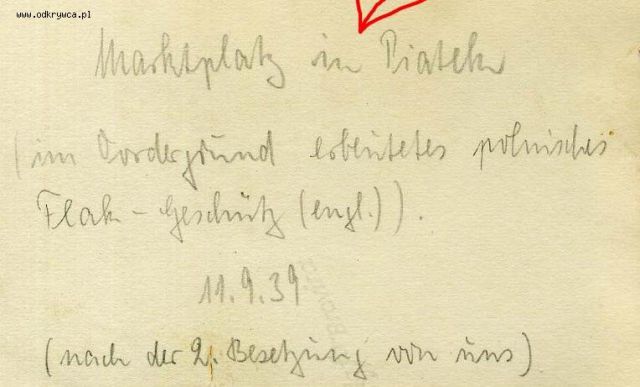 www.odkrywca.pl
Marktplatz in Piatek
(im Vordergrund erbeutetes polnisches
Flak-Geschütz (engl.)).
11.9.39
(nach der 2. Besetzung von uns)